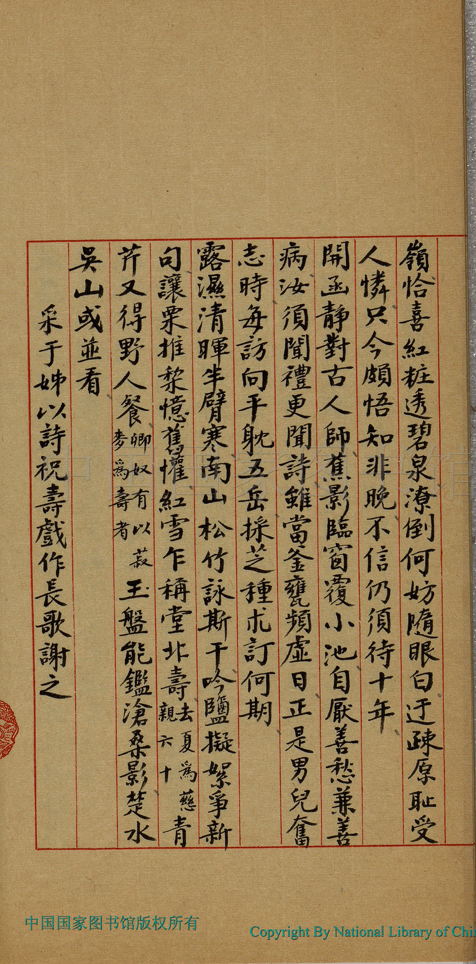 嶺恰喜紅粧透碧泉潦倒何妨隨眼白迂疎原耻受
人憐只今頗悟知非晚不信仍須待十年
開函靜對古人師蕉影臨窗覆小池自厭善愁兼善
病汝須聞禮更聞詩雖當釜甕頻虛日正是男兒奮
志時每訪向平躭五岳採芝種朮訂何期
露濕清暉半臂寒南山松竹詠斯干吟鹽擬絮爭新
句讓栗推黎憶舊懽紅雪乍稱堂北壽去夏為慈親六十青
芹又得野人餐卿奴有以菽麥為壽者玉盤能鑑滄桑影楚水
吳山或並看
采于姊以詩祝壽戲作長歌謝之
中国国家图书馆版权所有
Copyright By National Library of Chi